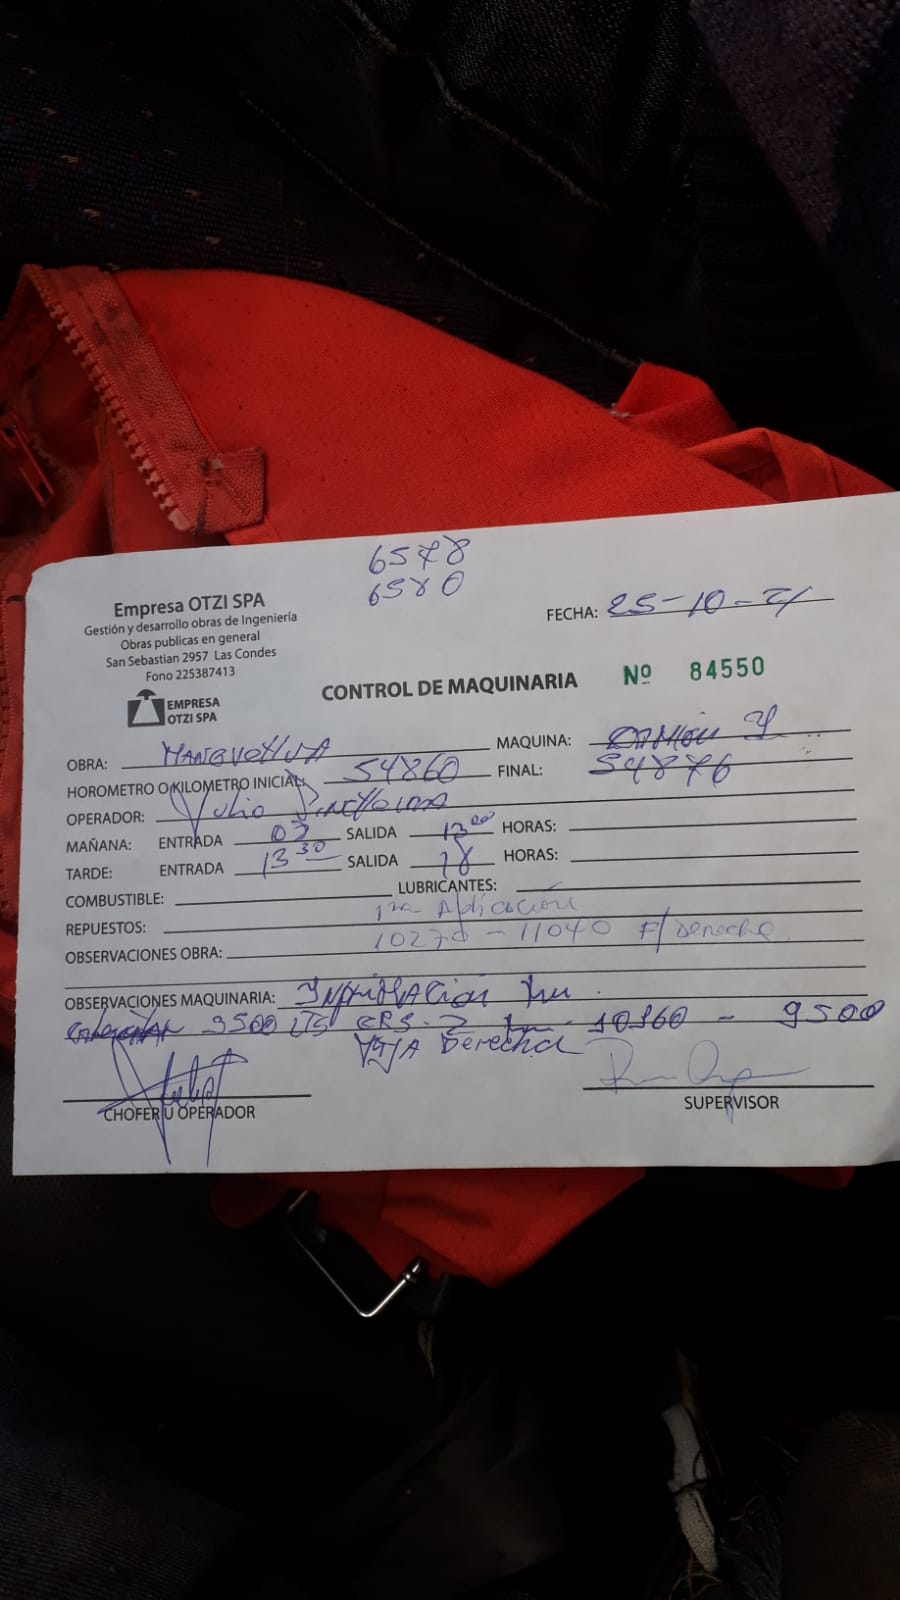 6578
6580
Empresa OTZI SPA
Gestión y desarrollo obras de Ingeniería
Obras publicas en general
San Sebastian 2957 Las Condes
Fono 225387413
EMPRESA
OTZI SPA
FECHA: 25-10-21
CONTROL DE MAQUINARIA Nº 84550
OBRA: MAQUINA:
HOROMETRO O KILOMETRO INICIAL: 54860 FINAL: 54876
OPERADOR: Julio
MAÑANA: ENTRADA SALIDA 13 00 HORAS:
TARDE: ENTRADA 13 30 SALIDA 18 HORAS:
COMBUSTIBLE: LUBRICANTES:
REPUESTOS: 1ra Aplicación
OBSERVACIONES OBRA: 10270 - 11040 F/ Derecha
OBSERVACIONES MAQUINARIA:
9500 LTS CRS-2 10360 - 9500
Derecha
CHOFER U OPERADOR
SUPERVISOR